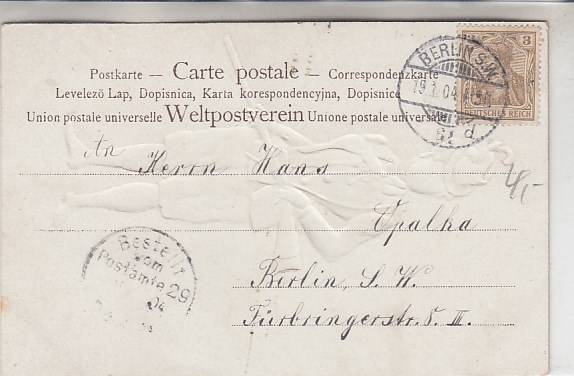 Postkarte — Carte postale — Correspondenzkarte
Levelező Lap, Dopisnica, Karta korespondencyjna, Dopisnice
Union postale universelle Weltpostverein Unione postale universale
3
DEUTSCHES REICH
BERLIN S.W.
19.1.04
An Herrn Hans
Opalka
Berlin, S. W.
Fürbringerstr. 5. III.
Bestellt
vom
Postamte 29
04